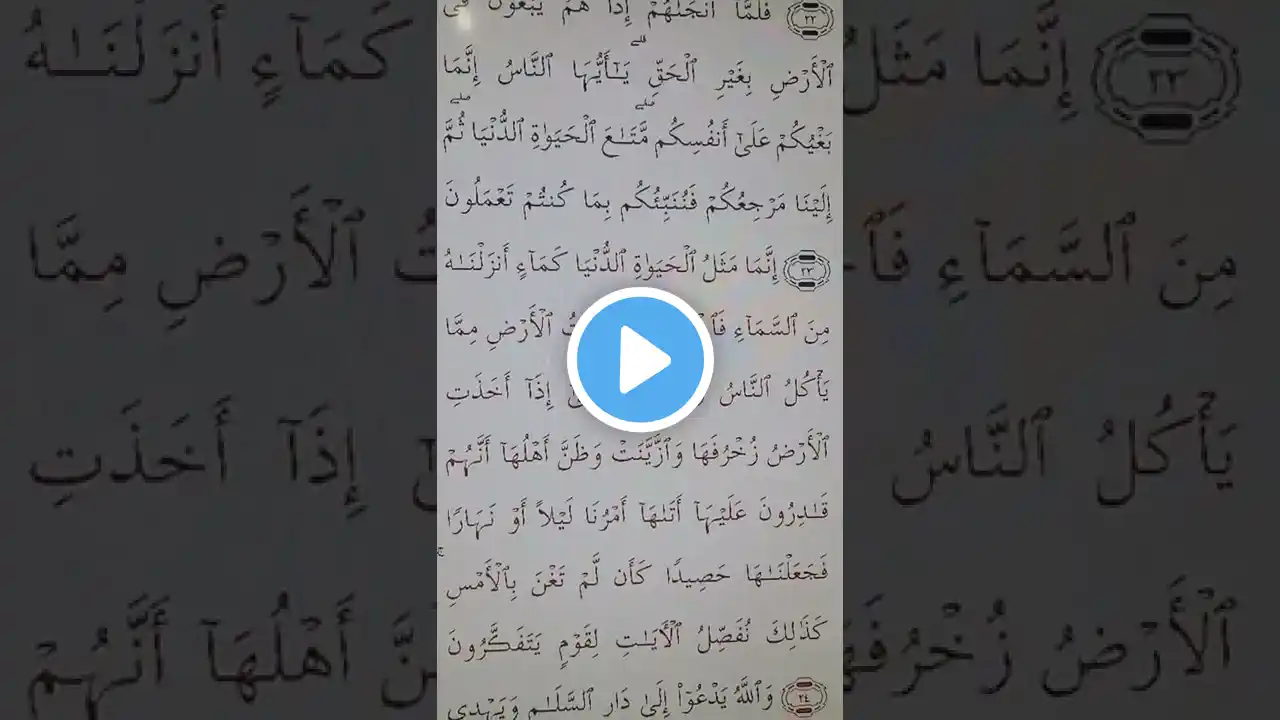 ٢٢ فَلَمَّآ أَنجَىٰهُمْ إِذَا هُمْ يَبْغُونَ فِى
ٱلْأَرْضِ بِغَيْرِ ٱلْحَقِّ ۗ يَـٰٓأَيُّهَا ٱلنَّاسُ إِنَّمَا
بَغْيُكُمْ عَلَىٰٓ أَنفُسِكُم ۖ مَّتَـٰعَ ٱلْحَيَوٰةِ ٱلدُّنْيَا ۖ ثُمَّ
إِلَيْنَا مَرْجِعُكُمْ فَنُنَبِّئُكُم بِمَا كُنتُمْ تَعْمَلُونَ
٢٣ إِنَّمَا مَثَلُ ٱلْحَيَوٰةِ ٱلدُّنْيَا كَمَآءٍ أَنزَلْنَـٰهُ
مِنَ ٱلسَّمَآءِ ٱلْأَرْضِ مِمَّا
يَأْكُلُ ٱلنَّاسُ إِذَآ أَخَذَتِ
ٱلْأَرْضُ زُخْرُفَهَا وَٱزَّيَّنَتْ وَظَنَّ أَهْلُهَآ أَنَّهُمْ
قَـٰدِرُونَ عَلَيْهَآ أَتَىٰهَآ أَمْرُنَا لَيْلاً أَوْ نَهَارًا
فَجَعَلْنَـٰهَا حَصِيدًا كَأَن لَّمْ تَغْنَ بِٱلْأَمْسِ ۚ
كَذَٰلِكَ نُفَصِّلُ ٱلْأَيَـٰتِ لِقَوْمٍ يَتَفَكَّرُونَ
٢٤ وَٱللَّهُ يَدْعُوٓا۟ إِلَىٰ دَارِ ٱلسَّلَـٰمِ وَيَهْدِى